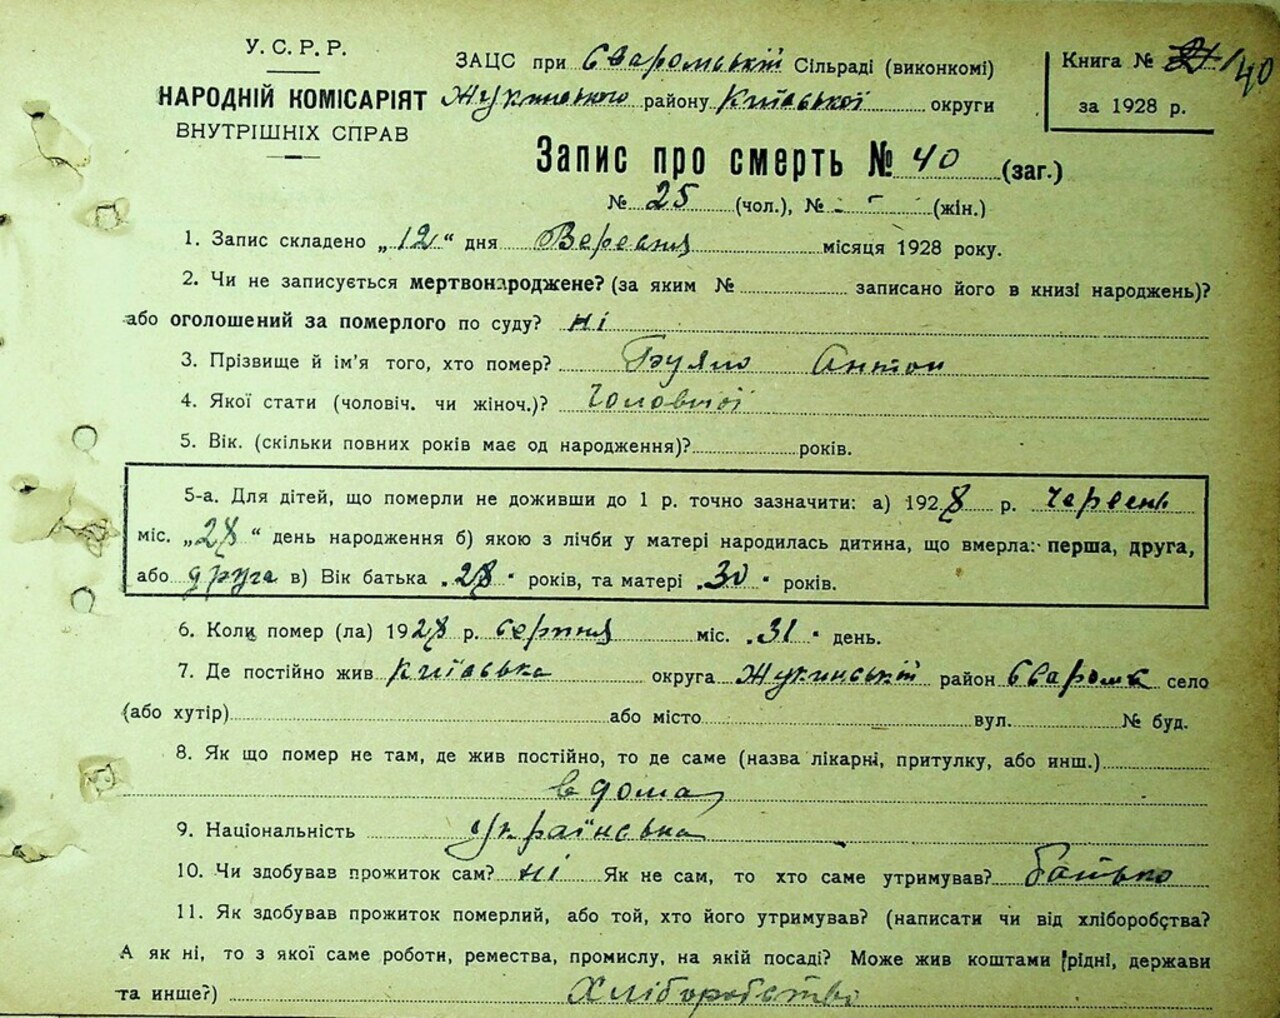 У.С.Р.Р.
НАРОДНІЙ КОМІСАРІЯТ
ВНУТРІШНІХ СПРАВ
ЗАЦС при Сваромській Сільраді (виконкомі)
Жукинського району Київської округи
Книга № 21/40
за 1928 р.
Запис про смерть № 40 (заг.)
№ 25 (чол.), № - (жін.)
1. Запис складено „12“ дня Вересня місяця 1928 року.
2. Чи не записується мертвонароджене? (за яким № записано його в книзі народжень)?
або оголошений за померлого по суду? ні
3. Прізвище й ім'я того, хто помер? Буяло Антон
4. Якої стати (чоловіч. чи жіноч.)? Чоловічої
5. Вік. (скільки повних років має од народження)? років.
5-а. Для дітей, що померли не доживши до 1 р. точно зазначити: а) 1928 р. червень
міс. „28“ день народження б) якою з лічби у матері народилась дитина, що вмерла: перша, друга,
або друга в) Вік батька „28“ років, та матері „30“ років.
6. Коли помер (ла) 1928 р. серпня міс. „31“ день.
7. Де постійно жив Київська округа Жукинській район Сваромє село
(або хутір) або місто вул. № буд.
8. Як що помер не там, де жив постійно, то де саме (назва лікарні, притулку, або инш.)
в дома
9. Національність Українська
10. Чи здобував прожиток сам? ні Як не сам, то хто саме утримував? батько
11. Як здобував прожиток померлий, або той, хто його утримував? (написати чи від хліборобства?
А як ні, то з якої саме роботи, ремества, промислу, на якій посаді? Може жив коштами рідні, держави
та инше?) Хліборобство